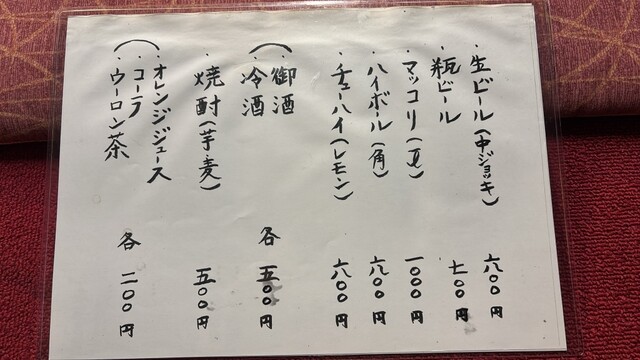 ・生ビール（中ジョッキ） 六〇〇円
・瓶ビール 七〇〇円
・マッコリ 一〇〇〇円
・ハイボール（角） 六〇〇円
・チューハイ（レモン） 六〇〇円
・御酒
・冷酒 各 五〇〇円
・焼酎（芋・麦） 五〇〇円
・オレンジジュース
・コーラ
・ウーロン茶 各 二〇〇円